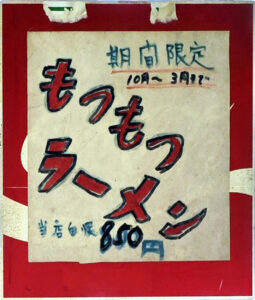 期間限定
10月〜3月まで
もつもつ
ラーメン
当店自慢 850円